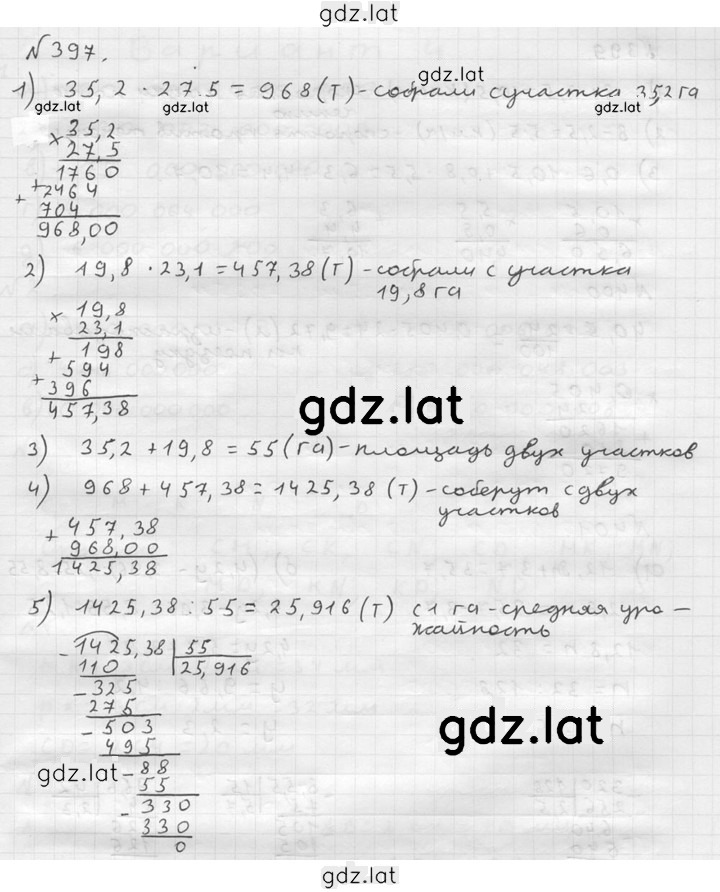 gdz.lat
№ 397.
1) 35,2 · 27.5 = 968 (т) - собрали с участка 35,2 га
gdz.lat gdz.lat gdz.lat
× 35,2
27,5
1760
+ 2464
+ 704
968,00
2) 19,8 · 23,1 = 457,38 (т) - собрали с участка
19,8 га
× 19,8
23,1
+ 198
594
+ 396
457,38
gdz.lat
3) 35,2 + 19,8 = 55 (га) - площадь двух участков
4) 968 + 457,38 = 1425,38 (т) - соберут с двух
участков
+ 457,38
968,00
1425,38
5) 1425,38 : 55 = 25,916 (т) с 1 га - средняя уро-
жайность
- 1425,38 | 55
110 25,916
- 325
275
- 503
495
gdz.lat
gdz.lat - 88
55
- 330
330
0
gdz.lat